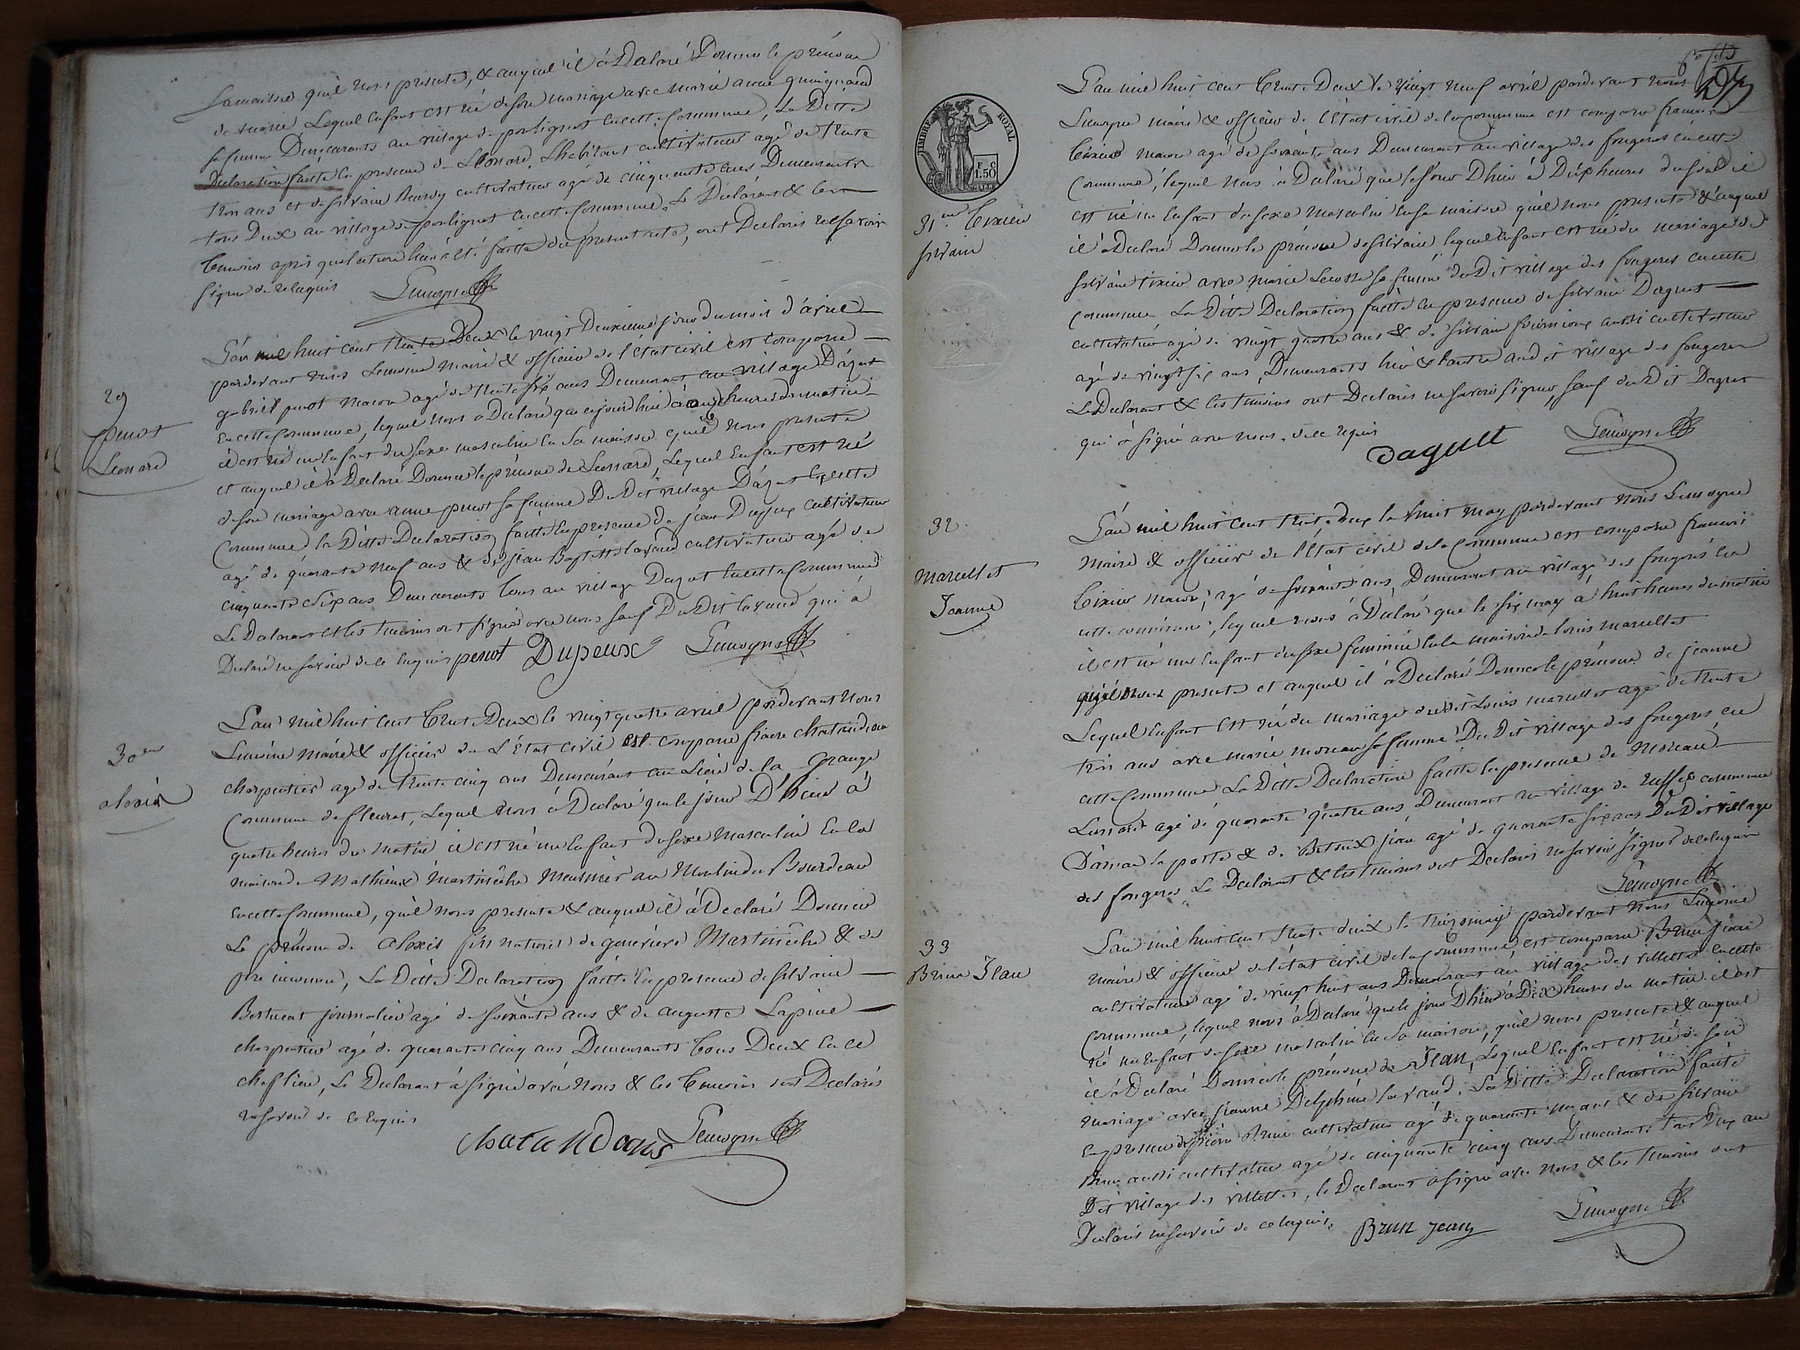 Sa maison qu'il nous presente, & auquel il à Declaré Donner le prénom
de marie Lequel Enfant est né de son mariage avec marie anne
sa femme Demeurants au village de poulignat en cette Commune, La Ditte
Declaration faitte En presence de Léonard cultivateur agé de trente
trois ans et de silvain cultivateur agé de cinquante ans Demeurants
tous Deux au village de poulignat en cette Commune, Le Déclarant & les
temoins après que lecture leur à été faitte du present acte, ont Declaré ne savoir
signer de ce requis
29
penot
Leonard
L'an mil huit cent trente Deux le vingt Deuxieme jour du mois d'avril
pardevant nous Lemoyne maire & officier de l'état civil est comparu
gabriel penot macon agé de trente six ans Demeurant au village D'azat
en cette Commune, lequel nous à Declaré que ce jourd'hui à onze heures du matin
il est né un Enfant du sexe masculin En Sa maison qu'il nous presente
et auquel il à Declaré Donner le prénom de Leonard, Lequel Enfant est né
de son mariage avec anne penot sa femme Du Dit village D'azat En cette
Commune la Ditte Declaration faitte En presence de jean Dupeux cultivateur
agé de quarante neuf ans & de jean Baptiste lavaud cultivateur agé de
cinquante six ans Demeurants tous au village Dazat En cette Commune
Le Declarant et les temoins ont signé avec nous sauf Du Dit lavaud qui à
Declaré ne savoir de ce Enquis penot Dupeux Lemoyne
30eme
alexis
L'an mil huit cent trente Deux le vingt quatre avril pardevant nous
Lemoine maire & officier de L'Etat Civil est comparu
charpentier agé de trente cinq ans Demeurant au Lieu de la Grange
Commune de fleurat, Lequel nous à Declaré que le jour D'hier à
quatre heures du matin il est né un Enfant du sexe Masculin En la
maison de Mathieux Martinèche Meunier au Moulin du Bourdeau
en cette Commune, qu'il nous presente & auquel il à Declaré Donner
Le prénom de alexis fils naturel de genevieve Martinèche & de
pere inconnu, La Ditte Declaration faitte En presence de silvain
journalier agé de soixante ans & de auguste Lapine
charpentier agé de quarante cinq ans Demeurants tous Deux En ce
chef lieu, Le Declarant à signé avec nous & les temoins ont Declarés
ne savoir de ce Enquis
Lemoyne
TIMBRE ROYAL
1.50
31eme Tixier
silvain
L'an mil huit cent trente Deux le vingt neuf avril pardevant nous
Lemoyne maire & officier de l'état civil de la commune est comparu francois
tixier macon agé de soixante ans Demeurant au village des fougeres en cette
Commune, lequel nous à Declaré que le jour D'hier à Dix heures du soir il
est né un Enfant du sexe masculin En sa maison qu'il nous presente & auquel
il à Declaré Donner le prénom de silvain lequel Enfant est né du mariage de
silvain tixier avec marie sa femme du Dit village des fougeres en cette
commune La Ditte Declaration faitte En presence de silvain Daguet
cultivateur agé de vingt quatre ans & de silvain aussi cultivateur
agé de vingt six ans, Demeurants l'un & l'autre au dit village des fougeres
Le Declarant & les temoins ont Declarés ne savoir signer, sauf du Dit Daguet
qui à signé avec nous, de ce requis
Dagult Lemoyne
32
Marcellot
Jeanne
L'an mil huit cent trente deux le huit may pardevant nous Lemoyne
maire & officier de l'état civil de la Commune est comparu francois
tixier macon, agé de soixante ans, Demeurant au village des fougeres En
cette commune, lequel nous à Declaré que le six may à huit heures du matin
il est né un Enfant du sexe feminin En la maison de louis marcellot
qu'il nous presente et auquel il à Declaré Donner le prénom de jeanne
Lequel Enfant est né du mariage dudit Louis marcellot agé de trente
trois ans avec marie moreau sa femme Du Dit village des fougeres en
cette Commune La Ditte Declaration faitte En presence de Moreau
Leonard agé de quarante quatre ans Demeurant au village de commune
D'anzeme la poste & de jean agé de quarante six ans Du Dit village
des fougeres Le Declarant & les temoins ont Declarés ne savoir signer de ce Enquis
Lemoyne
33
Brun Jean
L'an mil huit cent trente deux le treize may pardevant nous Lemoine
maire & officier de l'état civil de la commune est comparu Brun jean
cultivateur agé de vingt huit ans Demeurant au village des villettes en cette
Commune, lequel nous à Declaré que le jour D'hier à Dix heures du matin il est
né un Enfant du sexe masculin En Sa maison, qu'il nous presente & auquel
il à Declaré Donner le prénom de Jean, Lequel Enfant est né de son
mariage avec jeanne Delphine lavaud. La Ditte Declaration faitte
En presence de pierre Brun cultivateur agé de quarante ans & de silvain
Brun aussi cultivateur agé de cinquante cinq ans Demeurants tous Deux au
Dit village des villettes, le Declarant à signé avec nous & les temoins ont
Declarés ne savoir de ce Enquis. Brun jean Lemoyne